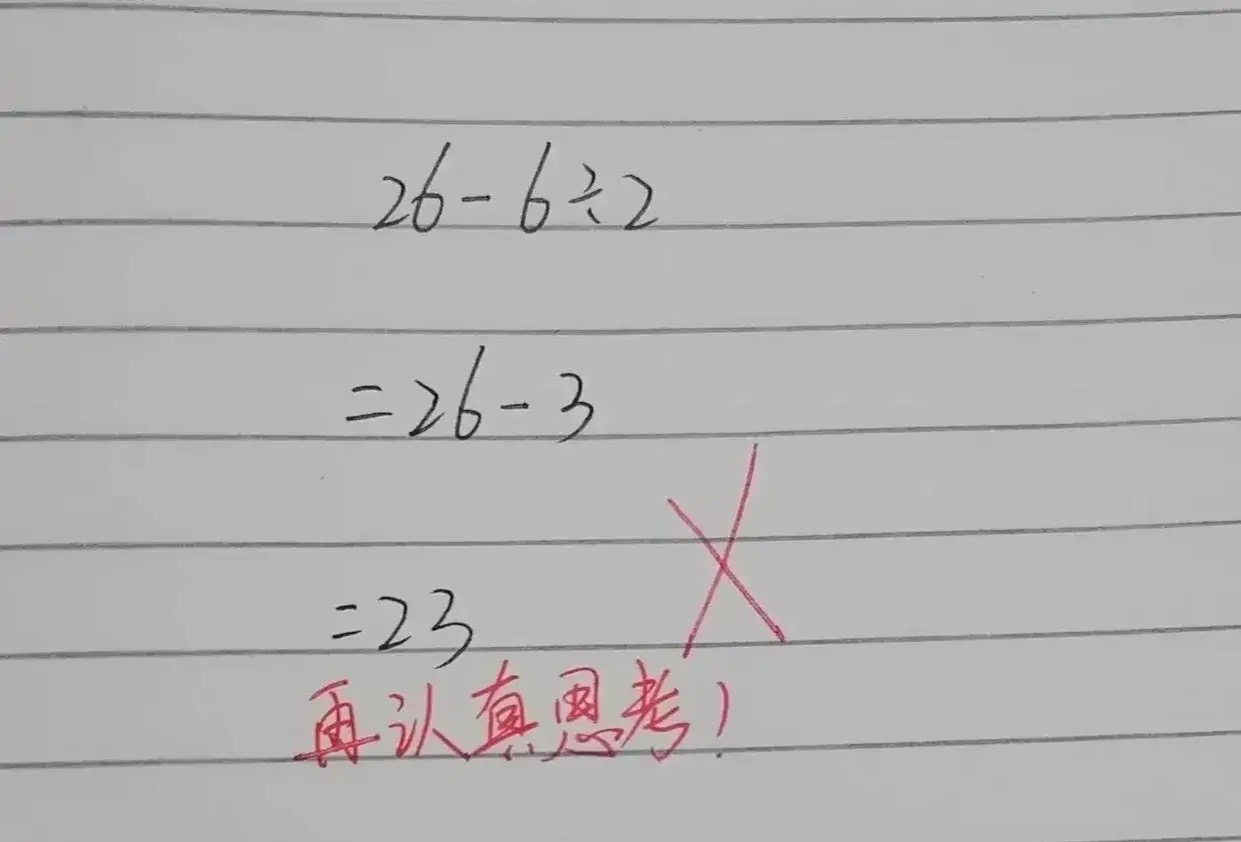 26-6÷2
=26-3
=23
再认真思考!